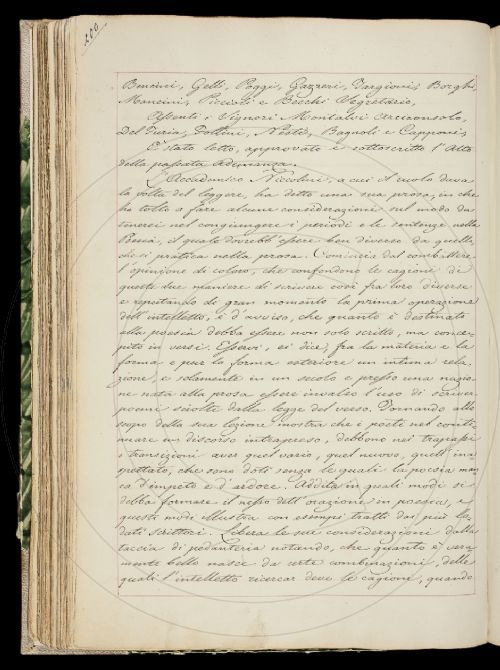 200
Bencini, Gelli, Poggi, Gazzeri, Targioni, Borghi,
Mancini, Piccioli e Becchi Segretario,
Assenti i Signori Montalvi Arciconsolo,
Del Furia, Follini, Nesti, Bagnoli e Capponi,
È stato letto, approvato e sottoscritto l'Atto
della passata Adunanza.
L'Accademico Niccolini, a cui il ruolo dava
la volta del leggere, ha detto una sua prosa, in che
ha tolto a fare alcune considerazioni sul modo da
tenersi nel congiungere i periodi e le sentenze nella
Poesia, il quale dovrebb'essere ben diverso da quello,
che si pratica nella prosa. Comincia dal combattere
l'opinione di coloro, che confondono le cagioni di
queste due maniere di scrivere così fra loro diverse
e reputando di gran momento la prima operazione
dell'intelletto, è d'avviso, che quanto è destinato
alla poesia debba essere non solo scritto, ma conce-
pito in versi. Esservi, ei dice, fra la materia e la
forma e per la forma esteriore un intima rela-
zione, e solamente in un secolo e presso una nazio-
ne nata alla prosa essere invalso l'uso di scriver
poemi sciolti dalla legge del verso. Tornando allo
scopo della sua lezione mostra che i poeti nel conti-
nuare un discorso intrapreso, debbono nei trapassi
e transizioni aver quel vario, quel nuovo, quell'ina-
spettato, che sono doti senza le quali la poesia man-
ca d'impeto e d'ardore. Addita in quali modi si
debba formare il nesso dell'orazione in poesia, e
questi modi illustra con esempi tratti dai più lo-
dati scrittori. Libera le sue considerazioni dalla
taccia di pedanteria notando, che quanto è vera-
mente bello nasce da certe combinazioni, delle
quali l'intelletto ricercar deve le cagioni, quando